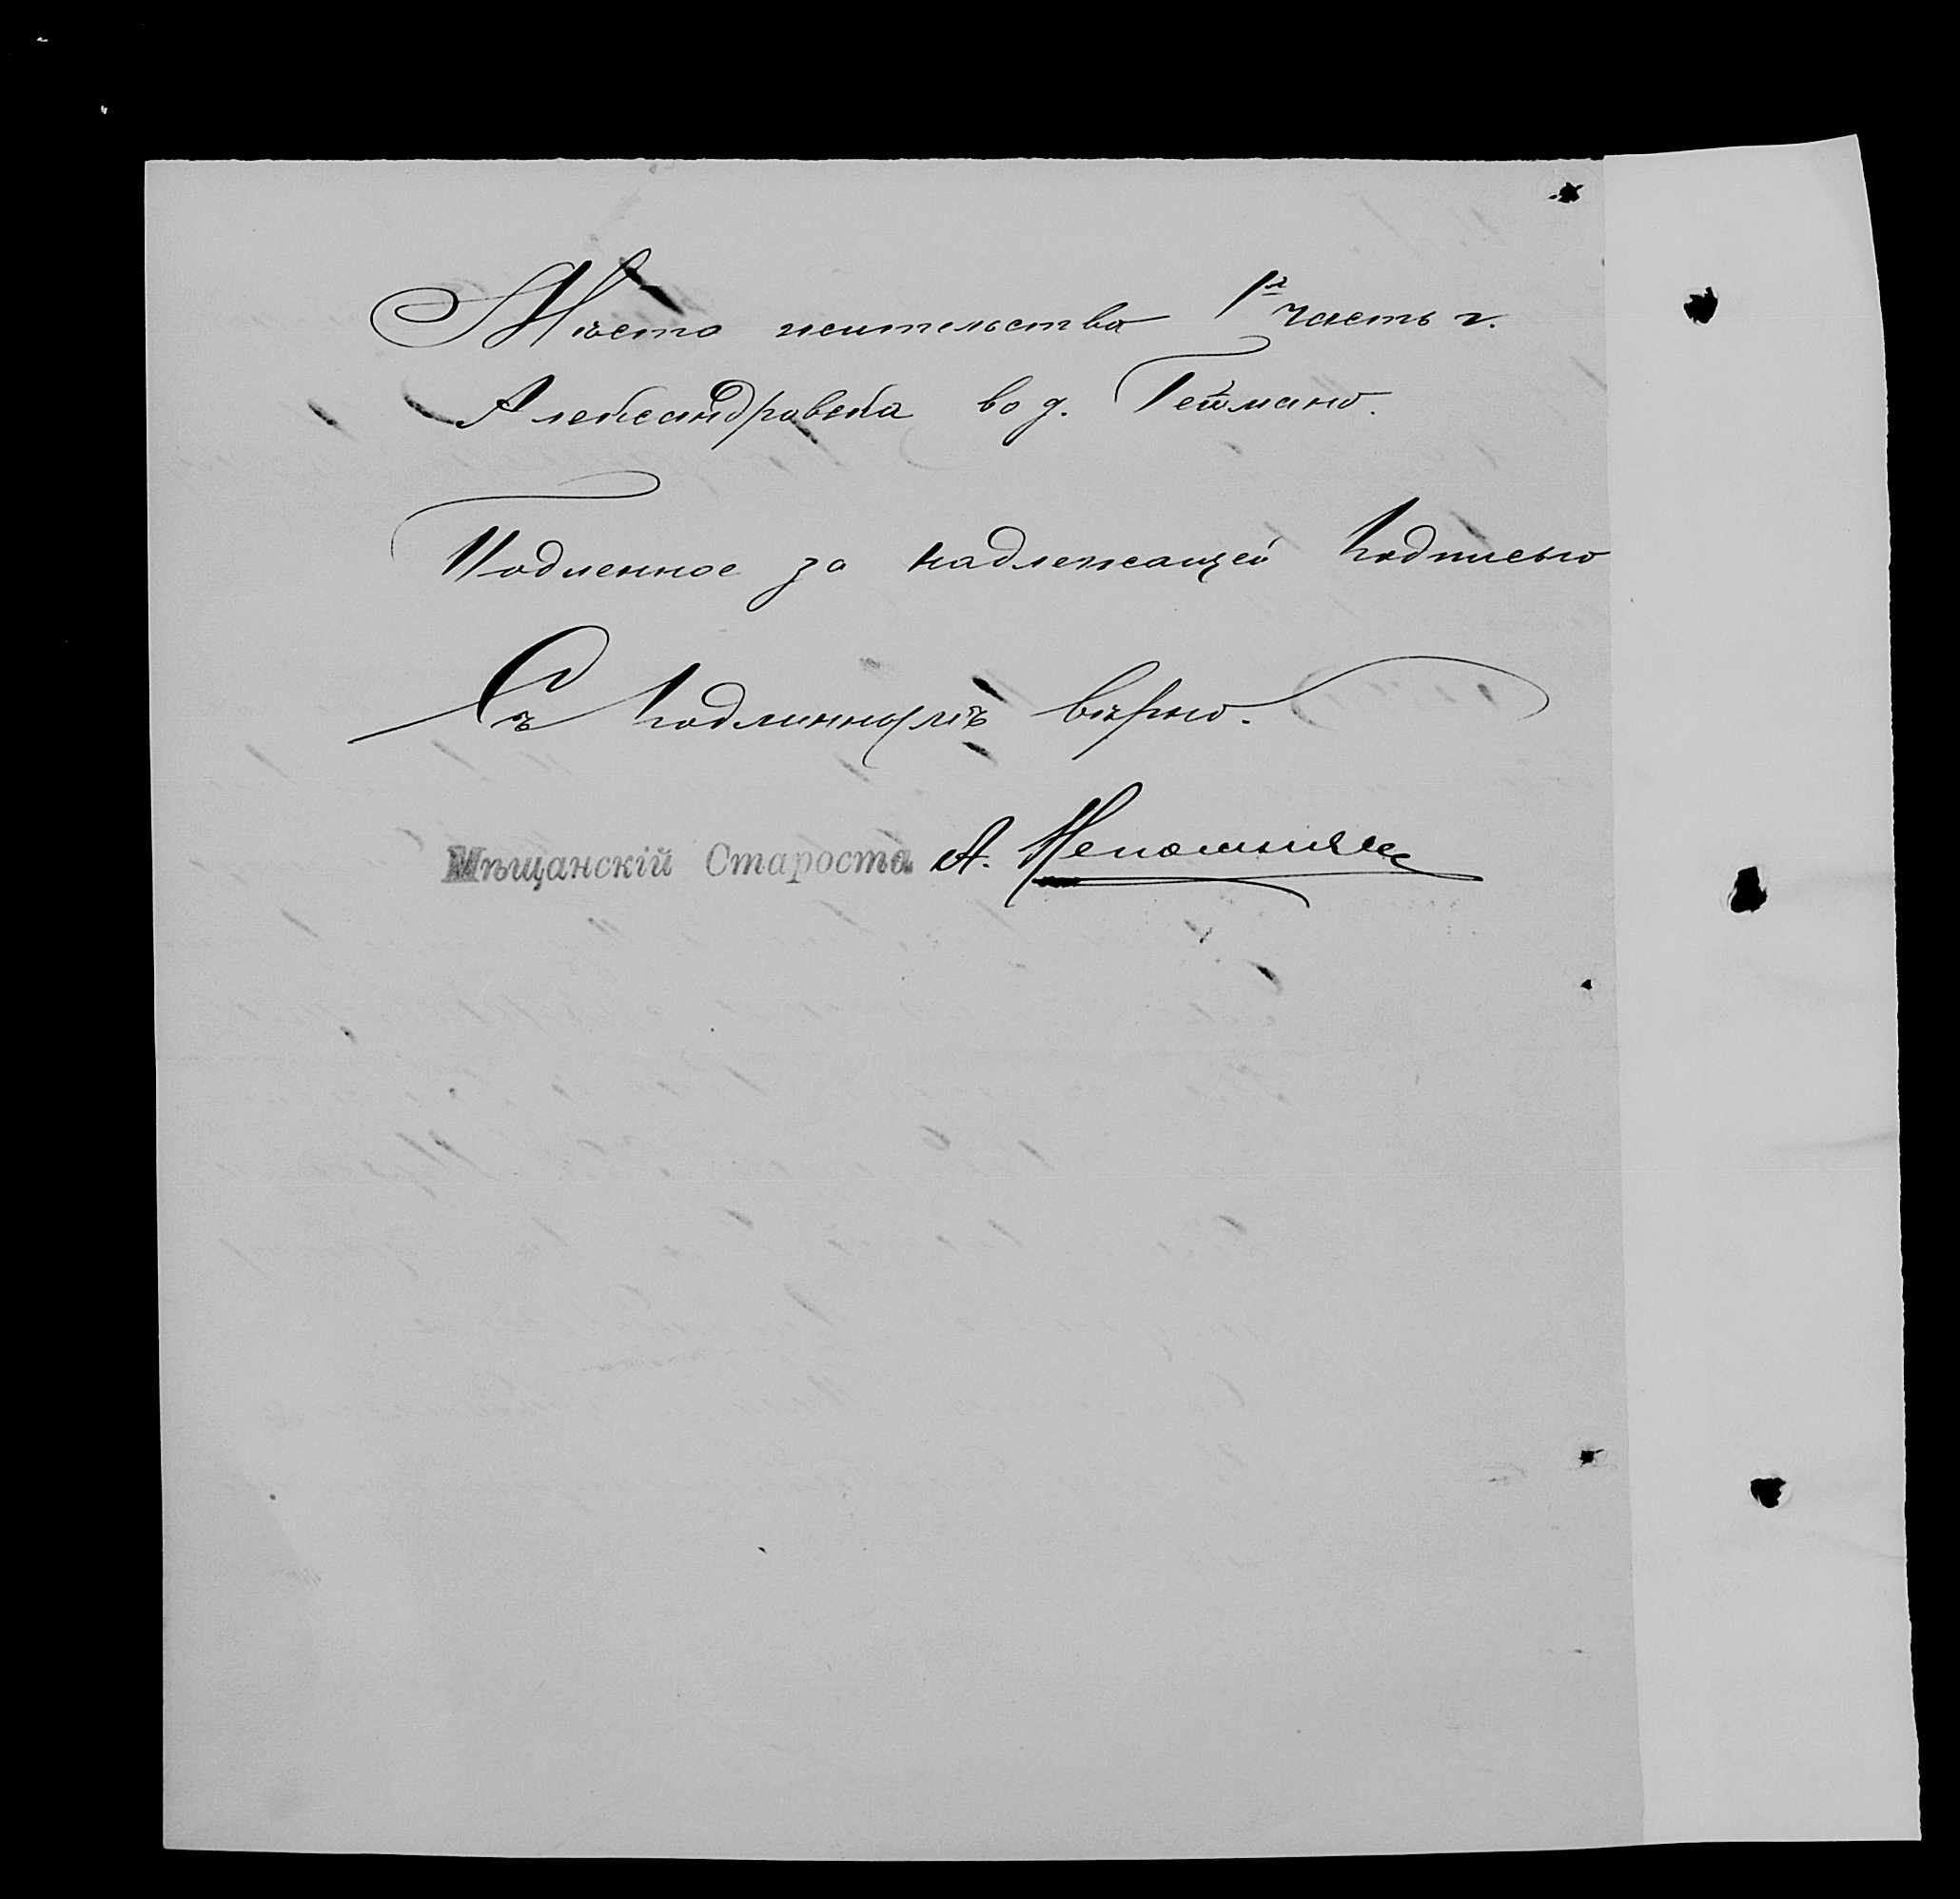 Мѣсто жительства 1я часть г.
Александровска во д. Геймано.
Подленное за надлежащей подписью
Съ подлиннымъ вѣрно.
Мѣщанскій Староста А. Непомнящ